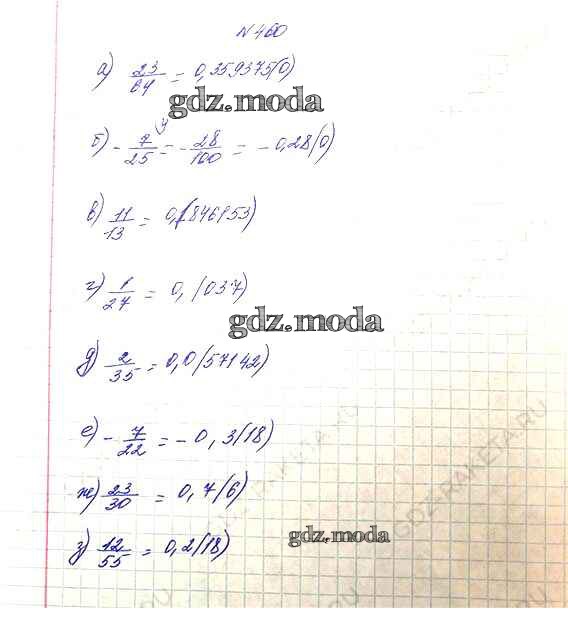 № 460
а) 23/64 = 0,359375(0)
gdz.moda
б) - 7/25 = - 28/100 = - 0,28(0)
в) 11/13 = 0,(846153)
г) 1/27 = 0,(037)
gdz.moda
д) 2/35 = 0,0(57142)
е) - 7/22 = - 0,3(18)
ж) 23/30 = 0,7(6)
з) 12/55 = 0,2(18)
gdz.moda
GDZ-RAKETA.RU